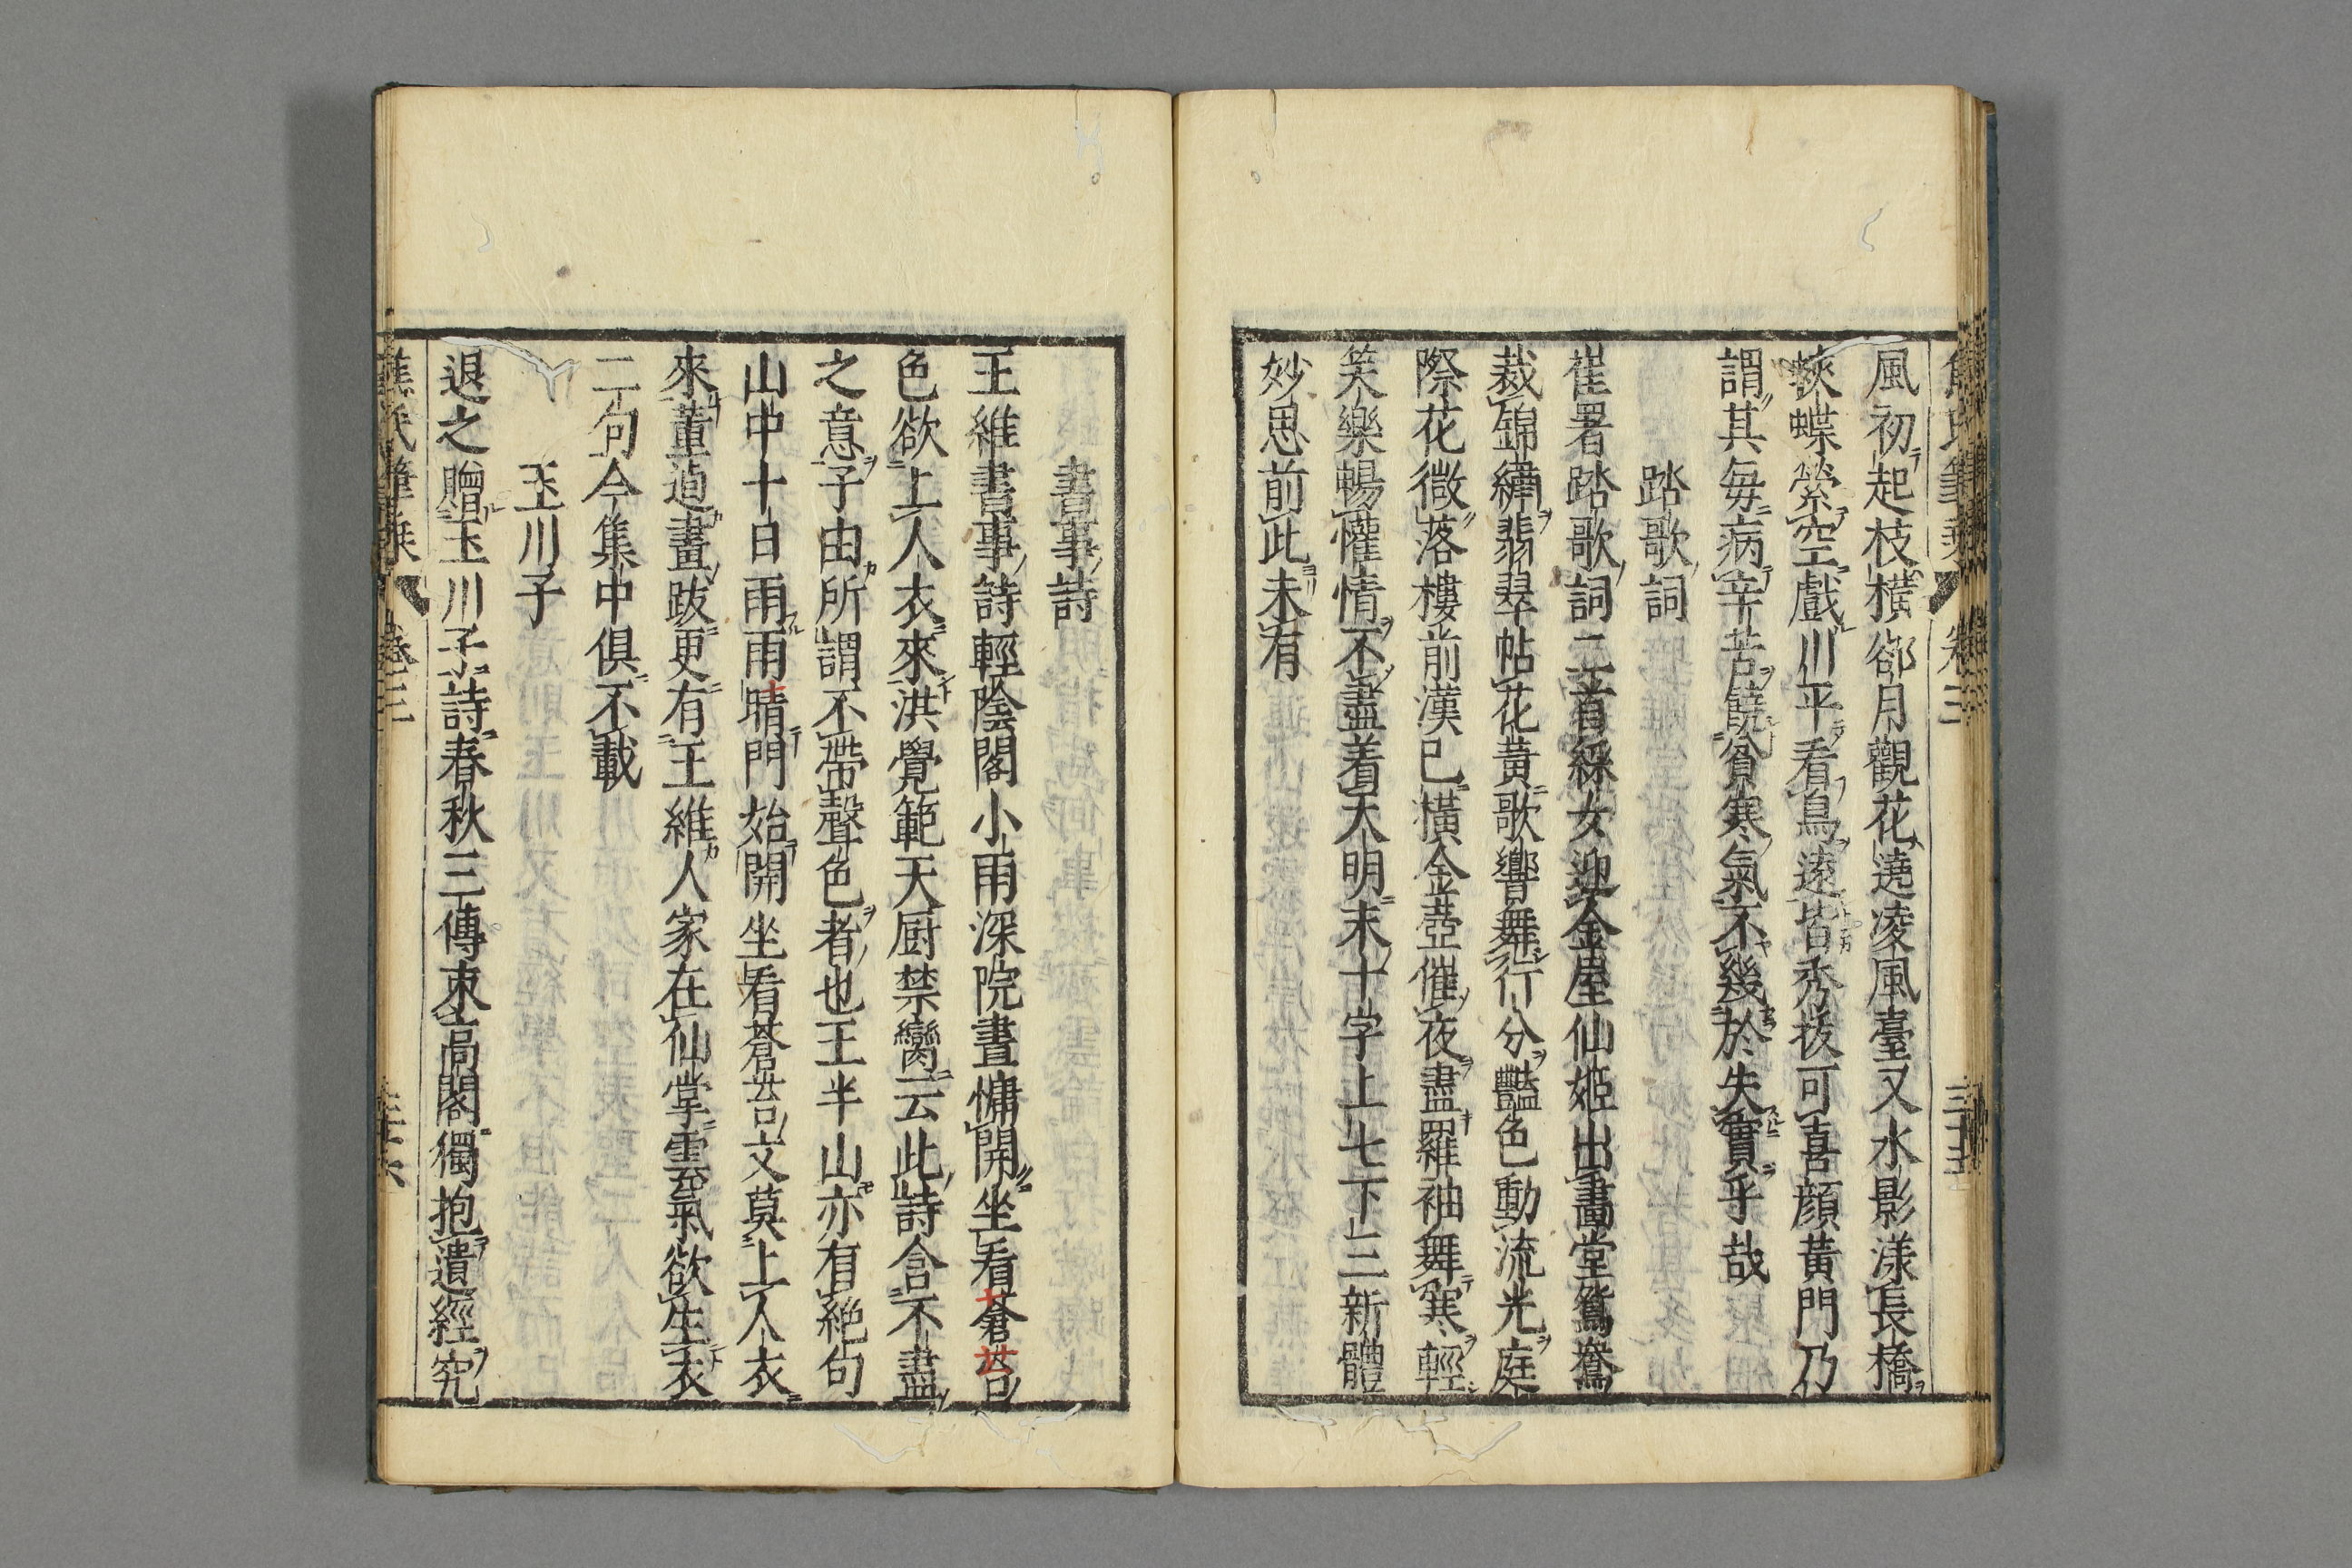 風初起枝橫卻月觀花遶凌風臺又水影漾長橋
蛺蝶縈空戲川平看鳥遠皆秀拔可喜顏黃門乃
謂其每病辛苦饒貧寒氣不幾於失實乎哉
踏歌詞
崔署踏歌詞二首綵女迎金屋仙姬出畫堂鴛鴦
裁錦繡翡翠帖花黃歌響舞行分豔色動流光庭
際花微落樓前漢已橫金壺催夜盡羅袖舞寒輕
笑樂暢懽情不盡着天明末十字上七下三新體
妙思前此未有
書事詩
王維書事詩輕陰閣小雨深院晝慵開坐看蒼苔
色欲上人衣來洪覺範天厨禁臠云此詩含不盡
之意子由所謂不帶聲色者也王半山亦有絕句
山中十日雨雨晴門始開坐看蒼苔文莫上人衣
來董逌畫跋更有王維人家在仙掌雲氣欲生衣
二句今集中俱不載
玉川子
退之贈玉川子詩春秋三傳束高閣獨抱遺經究
焦氏筆乘 卷三 三十六